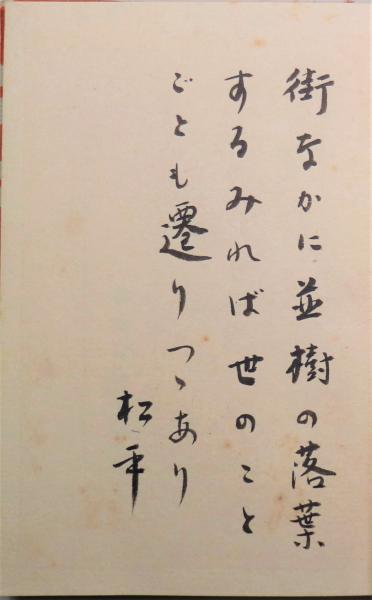 街なかに並樹の落葉
するみれば世のこと
ごとも遷りつゝあり
松平